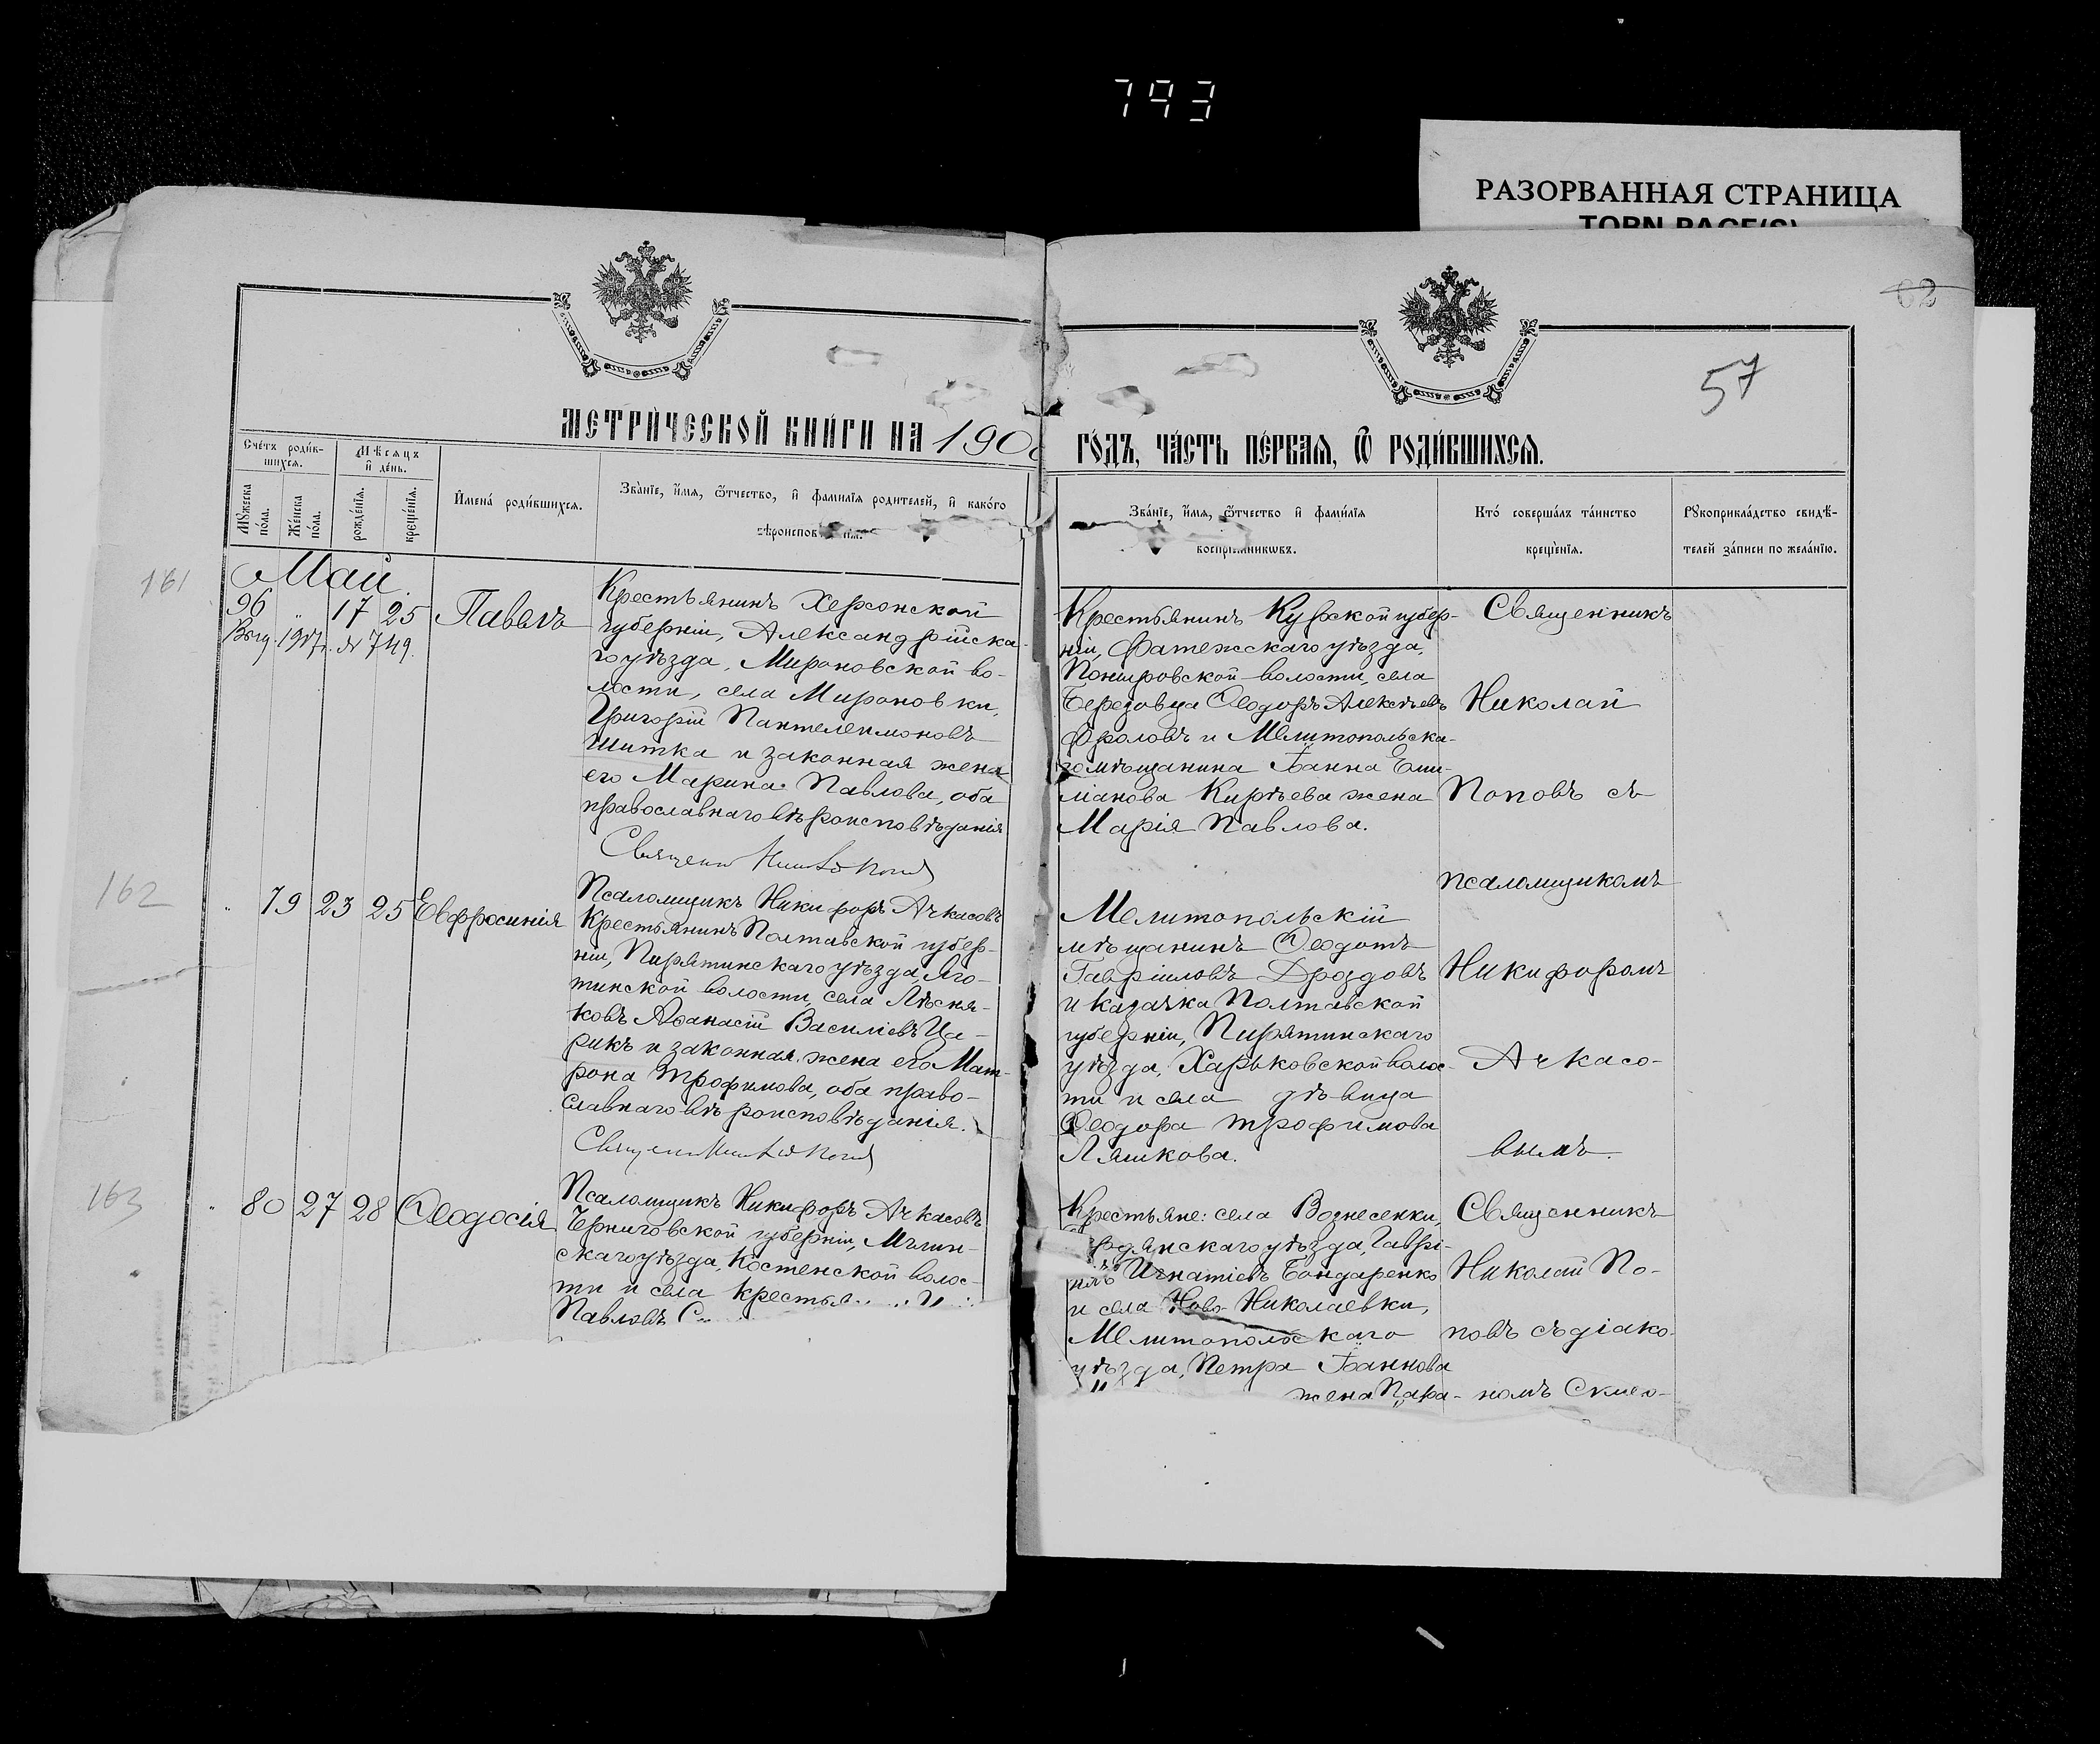 793
РАЗОРВАННАЯ СТРАНИЦА
TORN PAGE(S)
62
57
МЕТРИ́ЧЕСКОЙ КНИ́ГИ НА 190
ГО́ДЪ, ЧА́СТЬ ПЕ́РВАЯ, Ѡ РОДИ́ВШИХСЯ.
Сче́тъ роди́в-
шихся.
Мѣ́сяцъ
и҆ де́нь.
Мꙋ́жеска
по́ла.
Же́нска
по́ла.
рожде́нїя.
креще́нїя.
И҆мена̀ роди́вшихся.
Зва́нїе, и҆́мя, ѻ҆́тчество, и҆ фами́лїя роди́телей, и҆ како́го
вѣроиспов
Зва́нїе, и҆́мя, ѻ҆́тчество и҆ фами́лїя
воспрїе́мникѡвъ.
Кто̀ соверша́лъ та́инство
креще́нїя.
Рꙋкоприкла́дство свидѣ́-
телей за́писи по жела́нїю.
161
Май.
96 " 17 25 Павелъ
Выд. 1917г. № 749.
Крестьянинъ Херсонской
губерніи, Александрійска-
го уѣзда, Мироновской во-
лости, села Мироновки,
Григорій Пантелеимоновъ
Шитка и законная жена
его Марина Павлова, оба
православнаго вѣроисповѣданія
Священн
Крестьянинъ Курской губер-
ніи, Фатежскаго уѣзда,
Поныровской волости, села
Березовца Ѳеодоръ Алексѣевъ
Фроловъ и Мелитопольска-
го мѣщанина Іоанна Еми-
ліанова Кирѣева жена
Марія Павлова.
Священникъ
Николай
Поповъ съ
псаломщикомъ
Никифоромъ
Ачкасо-
вымъ.
162
" 79 23 25 Евфросинія
Псаломщикъ Никифоръ Ачкасовъ
Крестьянинъ Полтавской губер-
ніи, Пирятинскаго уѣзда, Яго-
тинской волости, села Лѣсня-
ковъ Аѳанасій Василіевъ Ца-
рикъ и законная жена его Мат-
рона Трофимова, оба право-
славнаго вѣроисповѣданія.
Мелитопольскій
мѣщанинъ Ѳеодотъ
Гавріиловъ Дроздовъ
и казачка Полтавской
губерніи, Пирятинскаго
уѣзда, Харьковской волос-
ти и села дѣвица
Ѳеодора Трофимова
Ляшкова.
163
" 80 27 28 Ѳеодосія
Псаломщикъ Никифоръ Ачкасовъ
Черниговской губерніи, Мглин-
скаго уѣзда, Костенской волос-
ти и села крестья
Павловъ С
Крестьяне: села Вознесенки,
рдянскаго уѣзда, Гаврі-
илъ Игнатіевъ Бондаренко
и села Ново-Николаевки,
Мелитопольскаго
уѣзда, Петра Іоаннова
жена Пара-
Священникъ
Николай По-
повъ съ діако-
номъ Скмео-